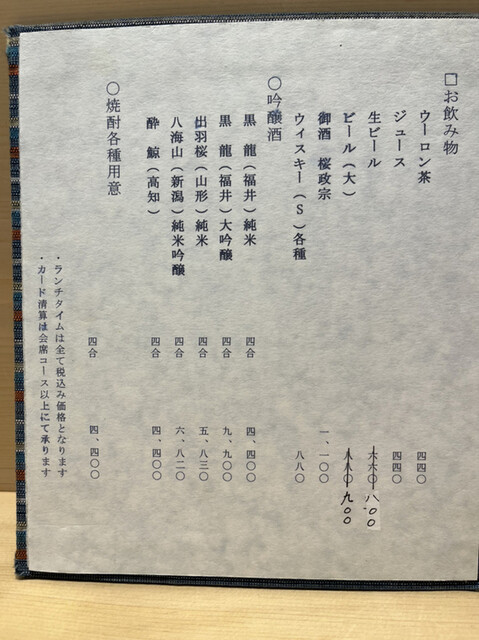 □お飲み物
ウーロン茶 四四〇
ジュース 四四〇
生ビール 六六〇 八〇〇
ビール(大) 八八〇 九〇〇
御酒 桜政宗 一、一〇〇
ウィスキー(S)各種 八八〇
〇吟醸酒
黒 龍(福井)純米 四合 四、四〇〇
黒 龍(福井)大吟醸 四合 九、九〇〇
出羽桜(山形)純米 四合 五、八三〇
八海山(新潟)純米吟醸 四合 六、八二〇
酔 鯨(高知) 四合 四、四〇〇
〇焼酎各種用意 四合 四、四〇〇
・ランチタイムは全て税込み価格となります
・カード清算は会席コース以上にて承ります